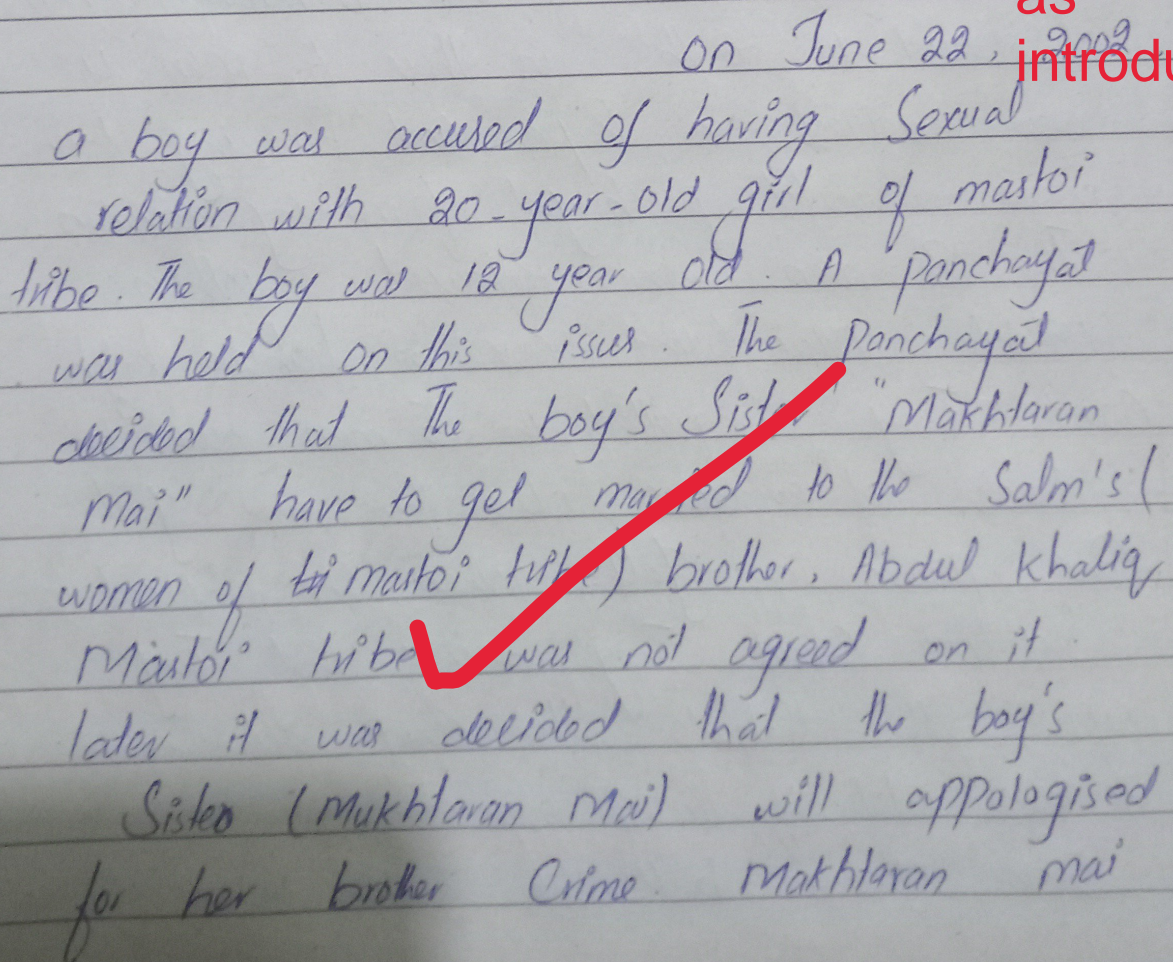 as
introdu
on June 22, 2002
a boy was accused of having Sexual
relation with 20-year-old girl of mastoi
tribe. The boy was 12 year old. A panchayat
was held on this issue. The Panchayat
decided that The boy's Sister "Makhtaran
Mai" have to get married to the Salm's (
women of tri mastoi tribe) brother, Abdul Khaliq
Mastoi tribe was not agreed on it.
later it was decided that the boy's
Sister (Mukhtaran Mai) will appologised
for her brother Crime. Makhtaran mai